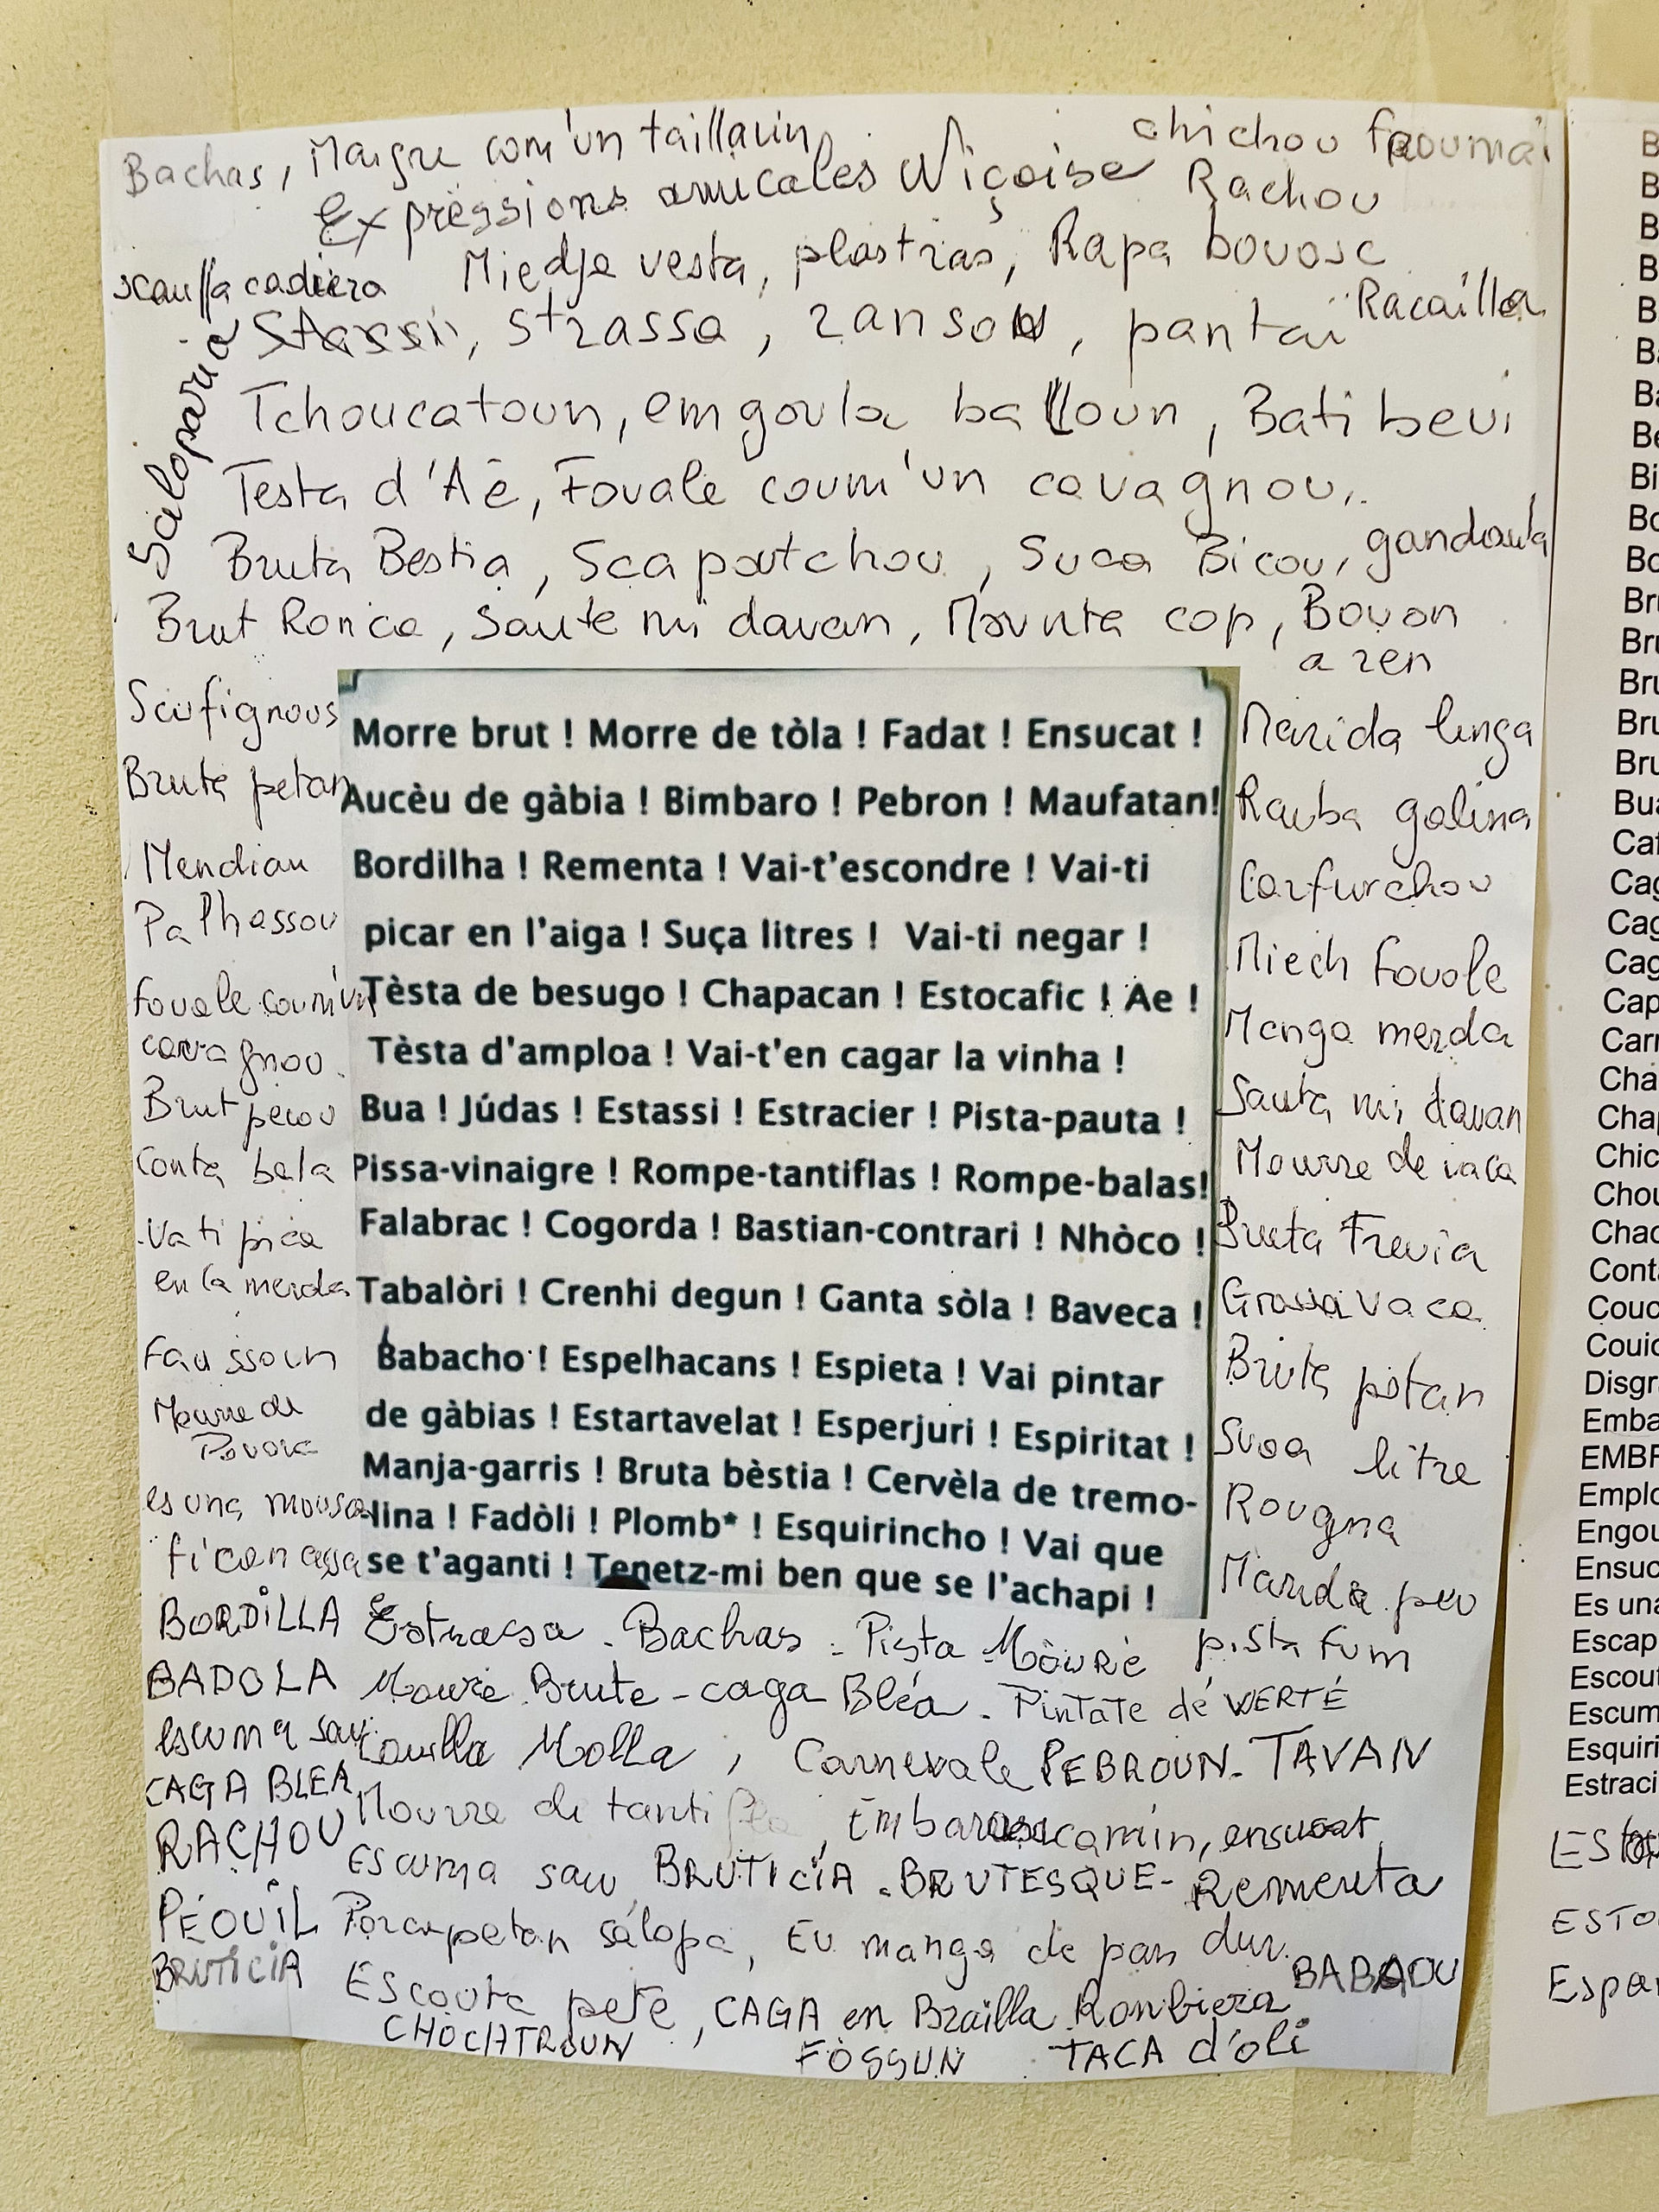 Bachas, Maigre com'un taillavin
chichou
Expressions amicales Niçoise Rachou
scauffa cadièra
Miedja vesta, plastras, Rapa bouosc
Racailla
strassa, zanson, pantaï
Saloparia
Tchoucatoun, emgoula balloun, Bati beui
Testa d'Aè, Fouale coum'un cavagnou,.
Bruta Bestia, Scapoutchou, Suca Bicou, gandoula
Brut Ronca, Saute mi davan, Mounta cop, Bouon
a ren
Scufignous
Bruta petan
Mendian
Palhassou
Fouale coum'un
cavagnou.
Brut peiou
Conta bala
Va ti pica
en la merda
Faussoun
Mourre de
Pouorc
es una mousa
fi con assa
Morre brut ! Morre de tòla ! Fadat ! Ensucat !
Aucèu de gàbia ! Bimbaro ! Pebron ! Maufatan!
Bordilha ! Rementa ! Vai-t'escondre ! Vai-ti
picar en l'aiga ! Suça litres ! Vai-ti negar !
Tèsta de besugo ! Chapacan ! Estocafic ! Ae !
Tèsta d'amploa ! Vai-t'en cagar la vinha !
Bua ! Júdas ! Estassi ! Estracier ! Pista-pauta !
Pissa-vinaigre ! Rompe-tantiflas ! Rompe-balas!
Falabrac ! Cogorda ! Bastian-contrari ! Nhòco !
Tabalòri ! Crenhi degun ! Ganta sòla ! Baveca !
Babacho ! Espelhacans ! Espieta ! Vai pintar
de gàbias ! Estartavelat ! Esperjuri ! Espiritat !
Manja-garris ! Bruta bèstia ! Cervèla de tremo-
lina ! Fadòli ! Plomb* ! Esquirincho ! Vai que
se t'aganti ! Tenetz-mi ben que se l'achapi !
Marida linga
Rauba galina
Carfurchou
Miech Fouole
Manga merda
Sauta mi davan
Mourre de vaca
Bruta Trevia
Grossa vaca
Bruta pitan
Suça litre
Rougna
Manda peu
pista fum
BORDILLA Estrassa - Bachas - Pista Mòurè
BADOLA Moure Brute - caga Bléa - PINTATE dé WERTÉ
escuma sau
Couilla Molla, Carnevale PEBROUN - TAVAN
CAGA BLEA
Mourre de tanti
Embarassa camin, ensucat
RACHOU
Escuma sau BRUTICIA - BRUTESQUE - Rementa
PÉOUIL Porca petan salopa, Eu manga de pan dur
BRUTICIA
BABAOU
Escouta pete, CAGA en Brailla Rombiera
CHOCHTROUN FÒSSUN TACA d'oli
B
B
B
B
B
Ba
Ba
Be
Bi
Bo
Bo
Bru
Bru
Bru
Bru
Bru
Bua
Caf
Cag
Cag
Cag
Cap
Carn
Cha
Chap
Chic
Chou
Chao
Conta
Couc
Couic
Disgr
Emba
EMBR
Emplo
Engou
Ensuc
Es una
Escap
Escout
Escum
Esquiri
Estraci
ESTO
Espar